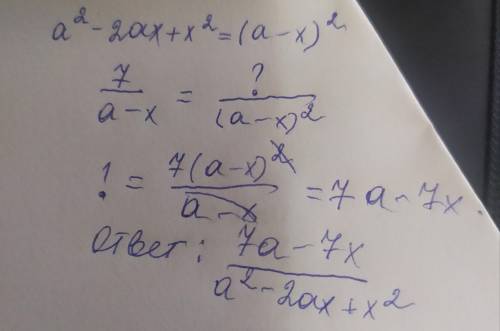 a² - 2ax + x² = (a - x)²
7/(a - x) = ?/(a - x)²
? = 7(a - x)²/(a - x) = 7a - 7x.
Ответ: (7a - 7x)/(a² - 2ax + x²)